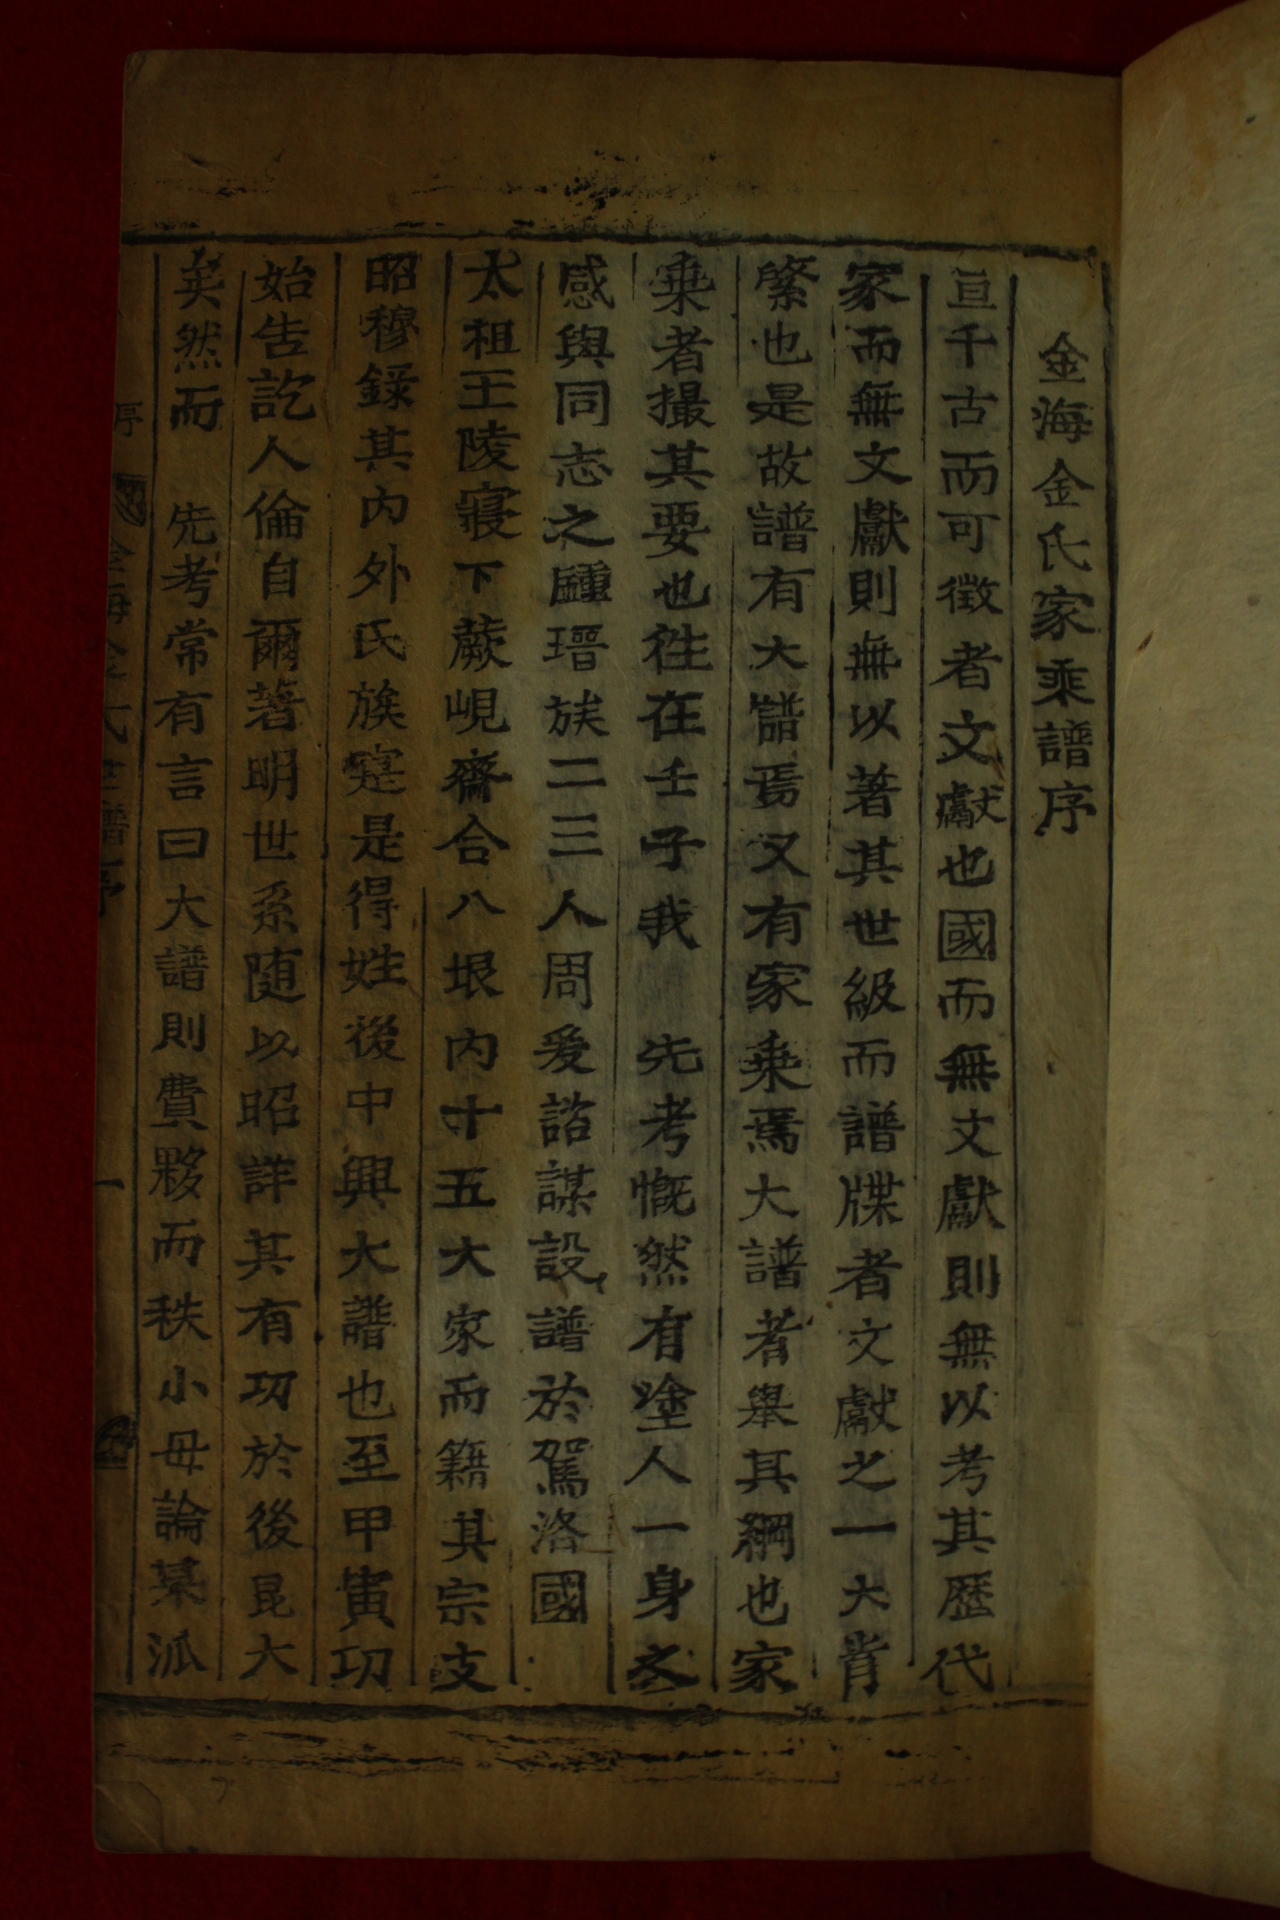 金海金氏家乘譜序
亘千古而可徵者文獻也國而無文獻則無以考其歷代
家而無文獻則無以著其世級而譜牒者文獻之一大肯
綮也是故譜有大譜焉又有家乘焉大譜者舉其綱也家
乘者撮其要也徃在壬子我 先考慨然有塗人一身之
感與同志之鍾瑨族二三人周爰諮謀設譜於駕洛國
太祖王陵寢下蕨峴齋合八垠内十五大家而籍其宗支
昭穆錄其内外氏族寔是得姓後中興大譜也至甲寅功
始告訖人倫自爾著明世系随以昭詳其有功於後昆大
矣然而 先考常有言曰大譜則費夥而秩小毋論某派
序 金海金氏世譜序 一